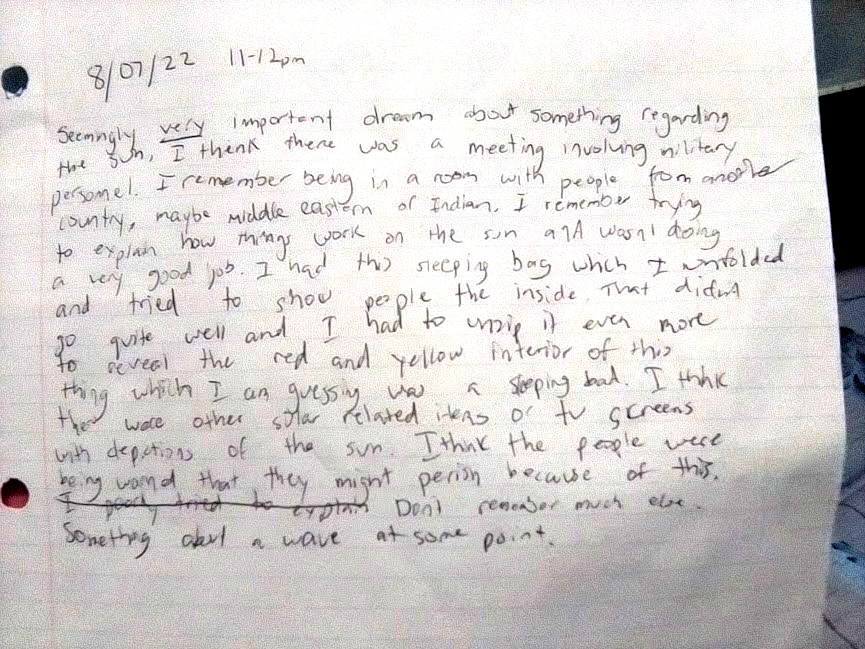 8/07/22 11-12pm
Seemingly very important dream about something regarding
the sun, I think there was a meeting involving military
personel. I remember being in a room with people from another
country, maybe middle eastern or Indian. I remember trying
to explain how things work on the sun and wasnt doing
a very good job. I had this sleeping bag which I unfolded
and tried to show people the inside. That didnt
go quite well and I had to unzip it even more
to reveal the red and yellow interior of this
thing which I am guessing was a sleeping bad. I think
ther were other solar related items or tv screens
with depictions of the sun. I think the people were
being warnd that they might perish because of this.
I poorly tried to explain Dont remember much else.
Something about a wave at some point.